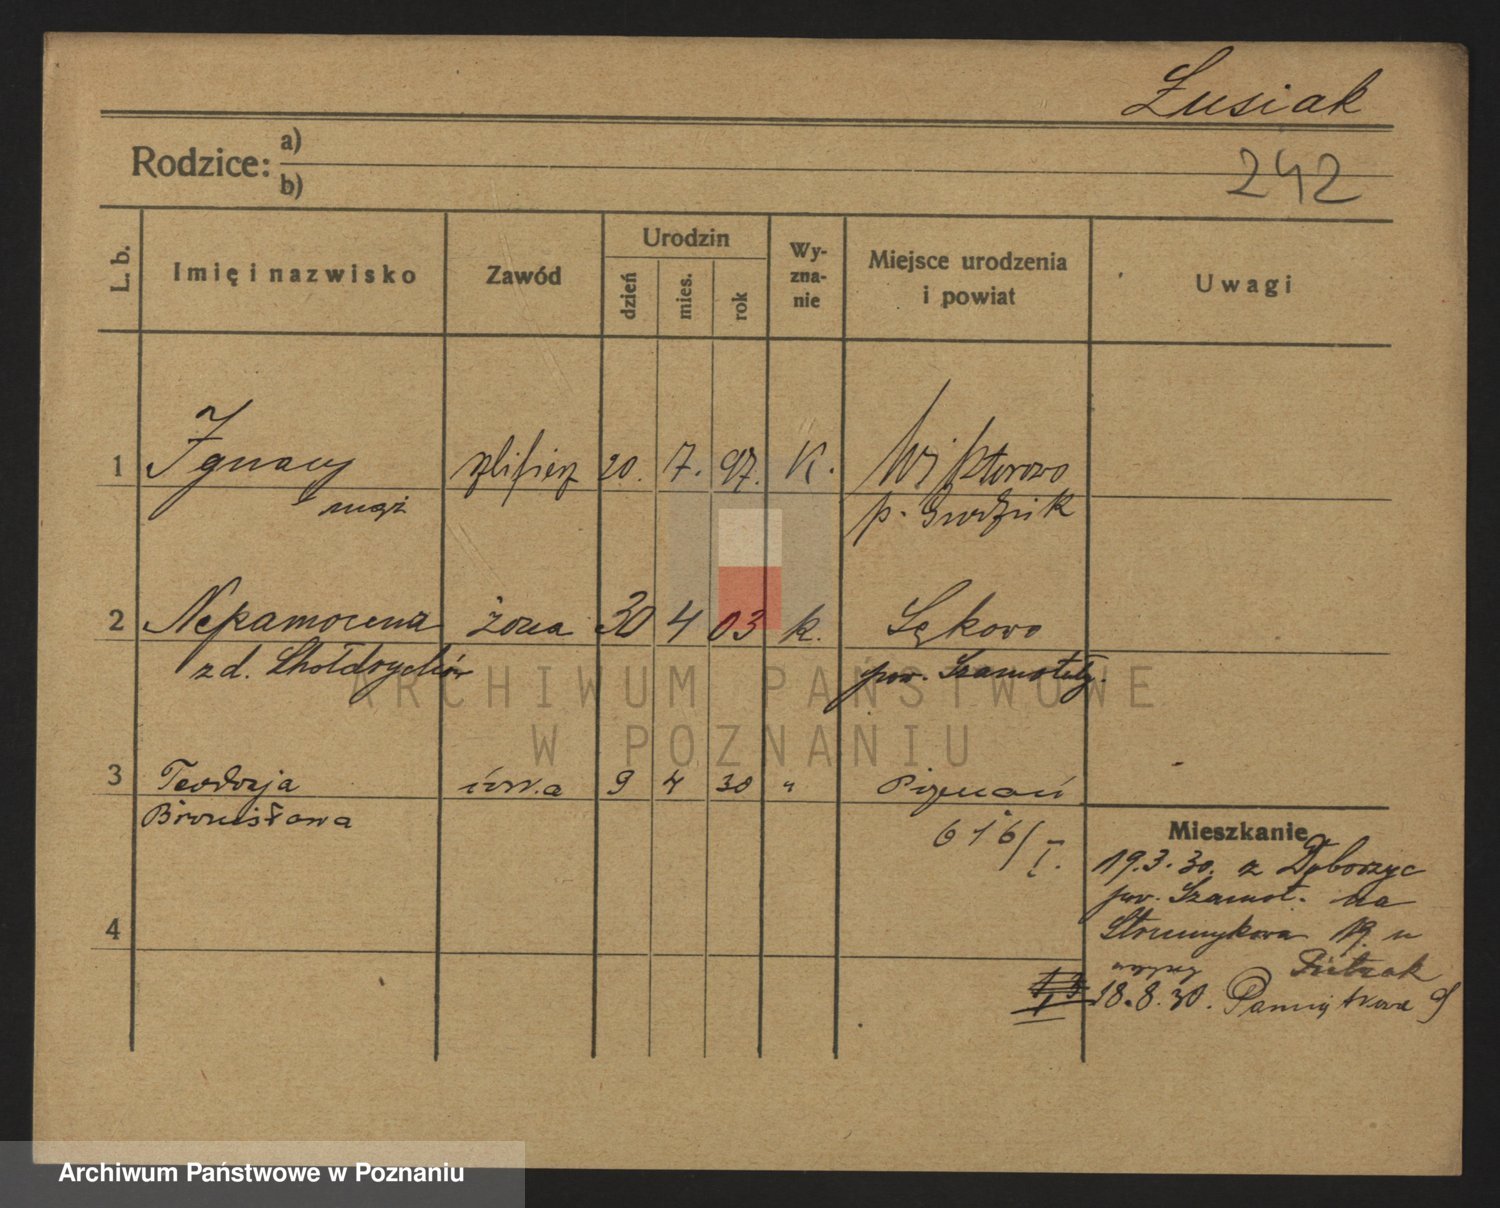 Łusiak
242
Rodzice: a)
b)
L. b. Imię i nazwisko Zawód Urodzin dzień mies. rok Wyznanie Miejsce urodzenia i powiat Uwagi
1 Ignacy szlifierz 20. 7. 97. K. Wiktorowo
mąż p. Grodzisk
2 Nepomocena żona 30 4 03 k. Sękowo
zd. pow. Szamotuły.
3 Teodozja córka 9 4 30 " Poznań
Bronisława 616/I.
Mieszkanie
19.3.30. z Dęborzyc
pow. Szamot. na
Strumykowa 19. u
Pietrzak
18.8.30. Pamiątkowa 9
4
ARCHIWUM PAŃSTWOWE
W POZNANIU
Archiwum Państwowe w Poznaniu